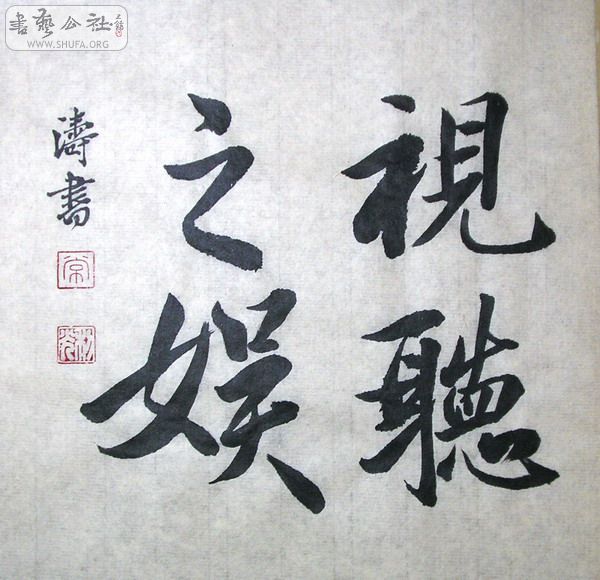 視聽
之娱
濤書
書藝公社
WWW.SHUFA.ORG